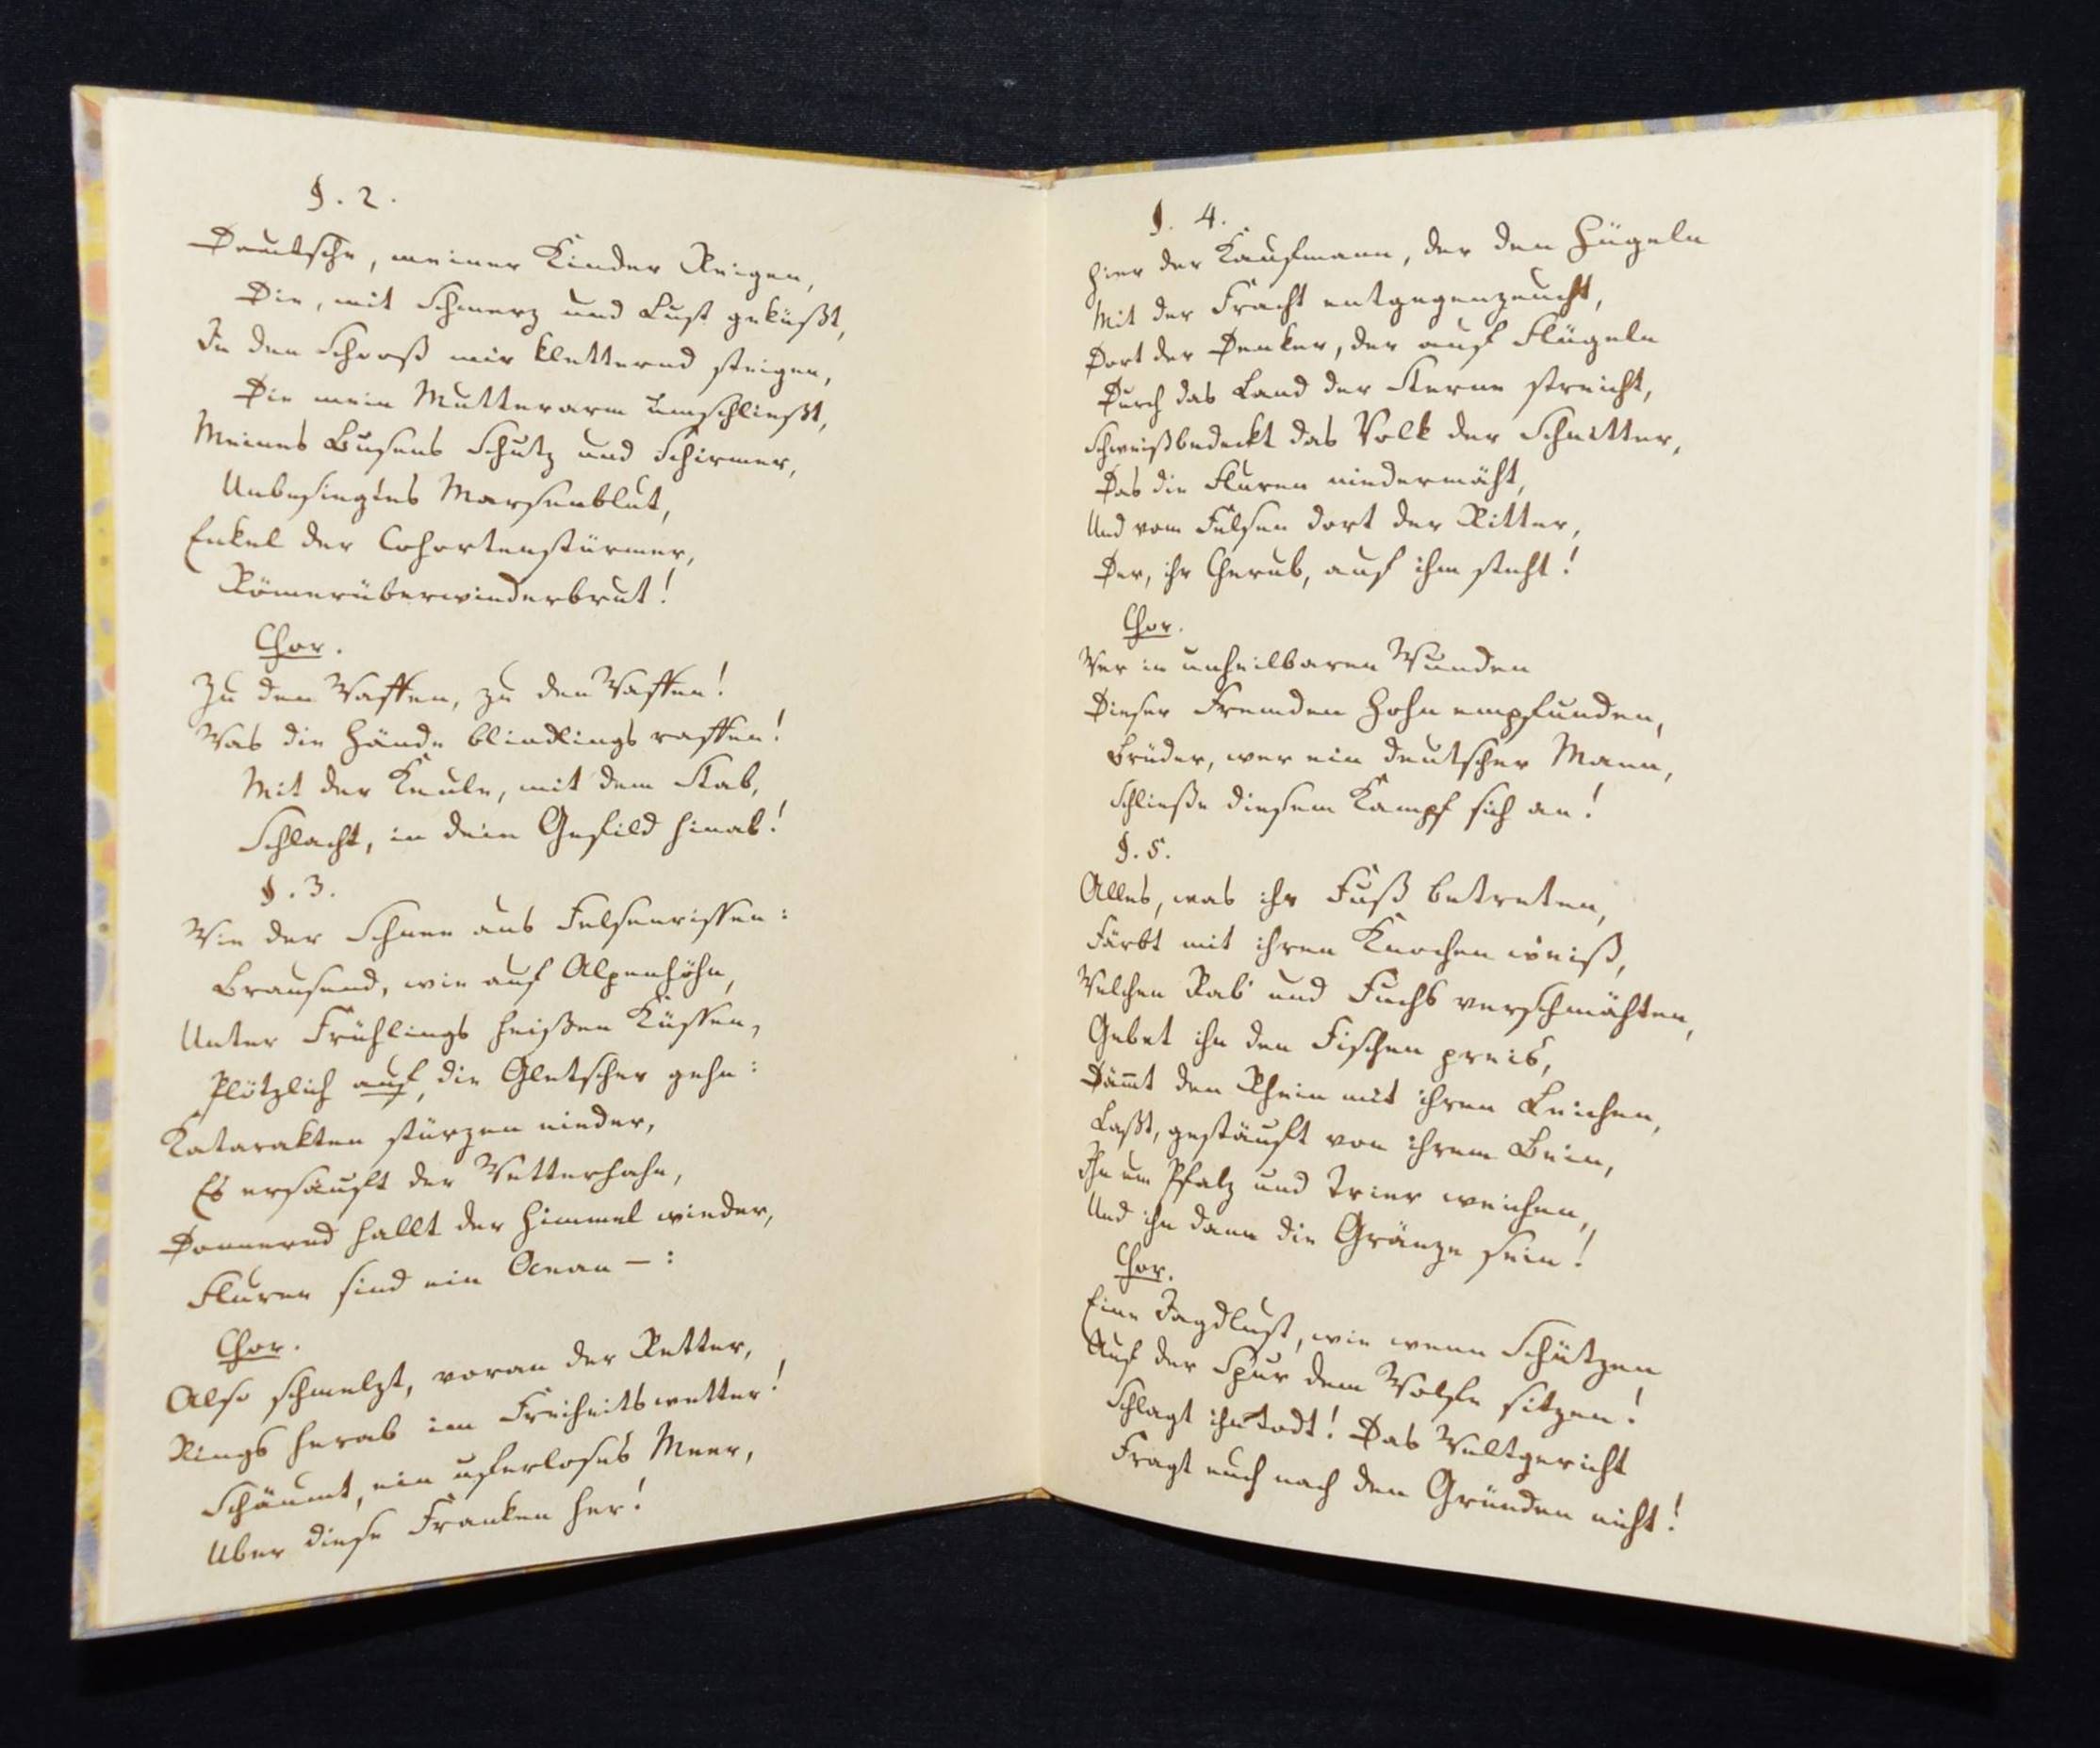 §. 2.
Deutsche, meiner Kinder Reigen,
Die, mit Schmerz und Lust geküßt,
In den Schooß mir kletternd steigen,
Die mein Mutterarm umschließt,
Meines Busens Schutz und Schirmer,
Unbesiegtes Marsenblut,
Enkel der Cohortenstürmer,
Römerüberwinderbrut!
Chor.
Zu den Waffen, zu den Waffen!
Was die Hände blindlings raffen!
Mit der Keule, mit dem Stab,
Schlacht, in dein Gefild hinab!
§. 3.
Wie der Schnee aus Felsenrissen:
Brausend, wie auf Alpenhöhn,
Unter Frühlings heißen Küssen,
Plötzlich auf, die Gletscher gehn:
Katarakten stürzen nieder,
Es ersäuft der Wetterhahn,
Donnernd hallt der Himmel wieder,
Fluren sind ein Ocean –:
Chor.
Also schmelzt, voran der Retter,
Rings herab im Freiheitswetter!
Schäumt, ein uferloses Meer,
Über diese Franken her!
§. 4.
Hier der Kaufmann, der den Hügeln
Mit der Fracht entgegenzeucht,
Dort der Denker, der auf Flügeln
Durch das Land der Sterne streicht,
Schweißbedeckt das Volk der Schnitter,
Das die Fluren niedermäht,
Und vom Felsen dort der Ritter,
Der, ihr Cherub, auf ihm steht!
Chor.
Wer in unheilbaren Wunden
Dieser Fremden Hohn empfunden,
Brüder, wer ein deutscher Mann,
Schließe diesem Kampf sich an!
§. 5.
Alles, was ihr Fuß betreten,
Färbt mit ihren Knochen weiß,
Welchen Rab' und Fuchs verschmähten,
Gebet ihn den Fischen preis,
Dām̄t den Rhein mit ihren Leichen,
Laßt, gestäuft von ihrem Bein,
Ihn um Pfalz und Trier weichen,
Und ihn dann die Gränze sein!
Chor.
Eine Jagdlust, wie wenn Schützen
Auf der Spur dem Wolfe sitzen!
Schlagt ihn todt! Das Weltgericht
Fragt euch nach den Gründen nicht!